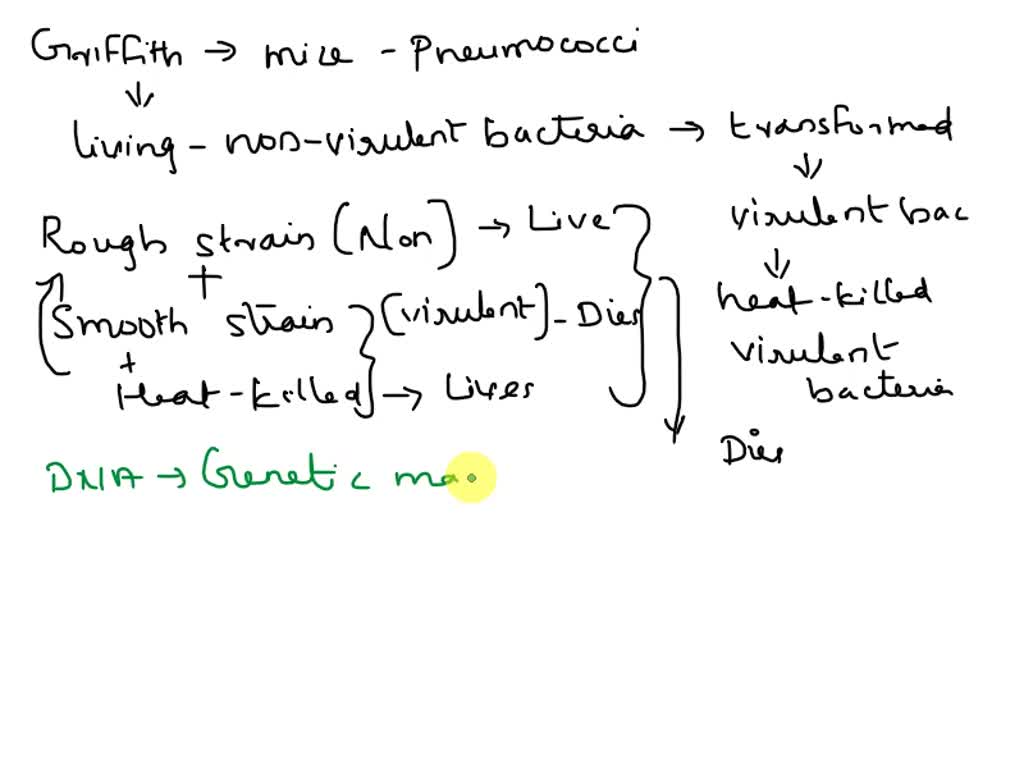 Griffith → mice - Pneumococci
↓
living - non-virulent bacteria → transformed
↓
virulent bac
↓
heat-killed
virulent
bacteria
Dies
Rough strain (Non) → Live
+
Smooth strain (virulent) - Dies
+
Heat-killed → Lives
DNA → Genetic ma